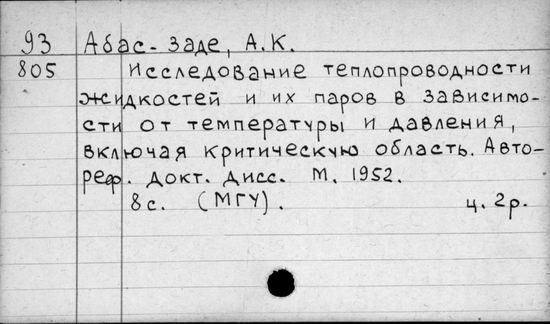 93 Абас-заде, А.К.
805 Исследование теплопроводности
жидкостей и их паров в зависимо-
сти от температуры и давления,
включая критическую область. Авто-
реф. докт. дисс. М. 1952.
8с. (МГУ). ц. 2р.